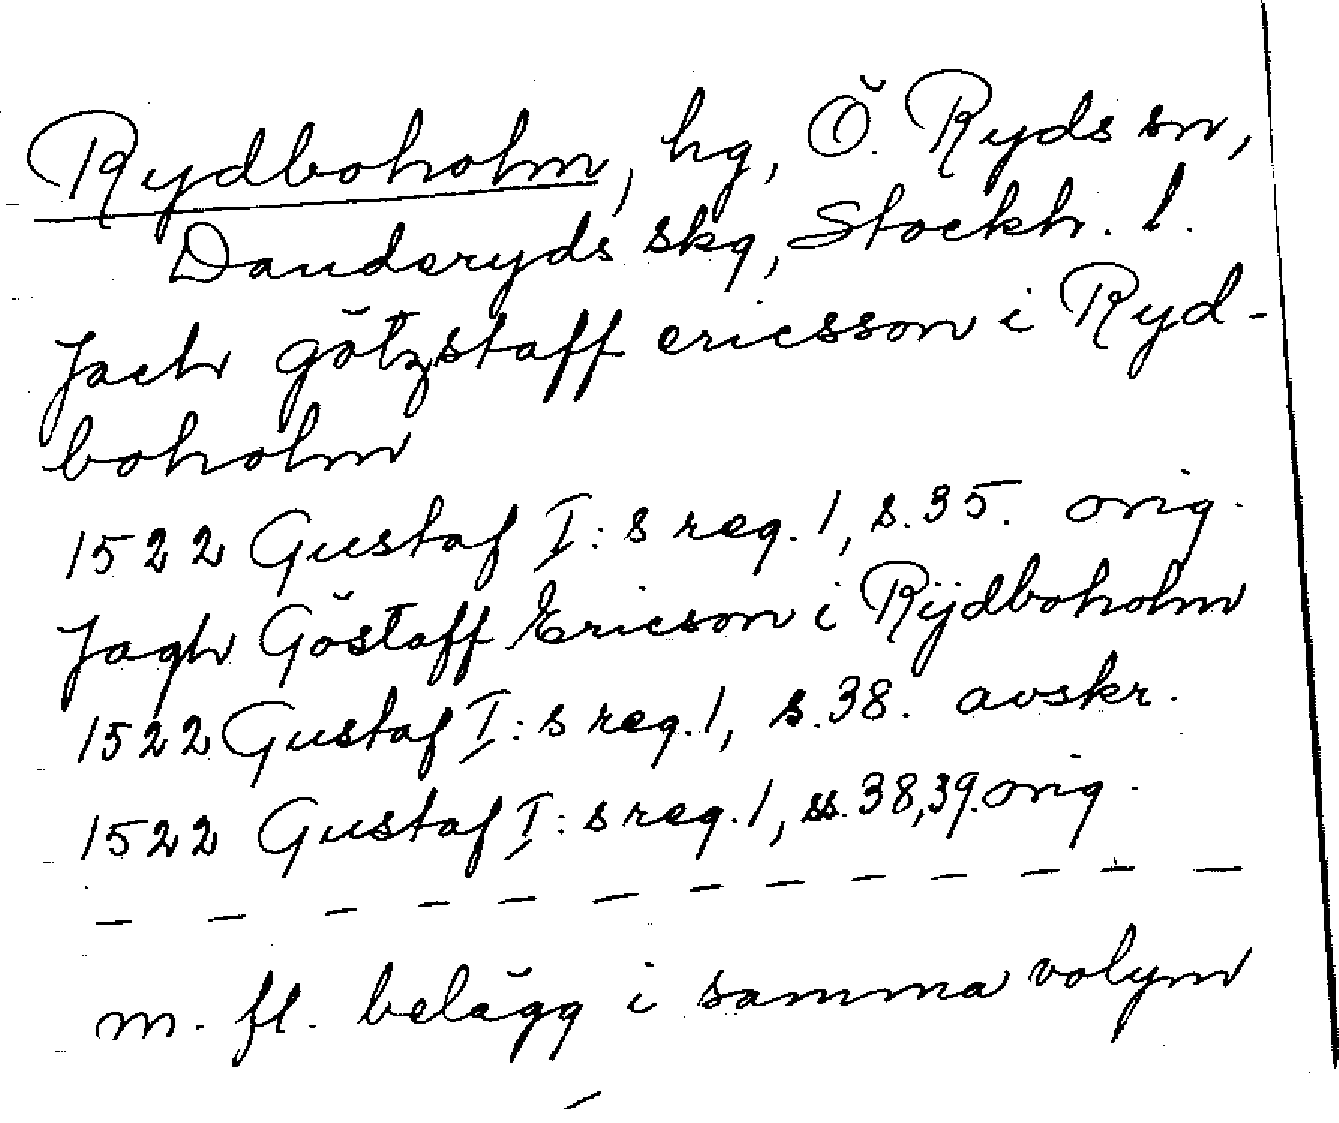 Rydboholm, hg, Ö. Ryds sn,
Danderyds skg, Stockh. l.
Jach götzstaff ericsson i Ryd-
boholm
1522 Gustaf I:s reg. 1, s. 35. orig.
Jagh Göstaff Ericson i Rÿdboholm
1522 Gustaf I:s reg. 1, s. 38. avskr.
1522 Gustaf I:s reg. 1, ss. 38, 39. orig.
– – – – – – – – – – – – –
m. fl. belägg i samma volym